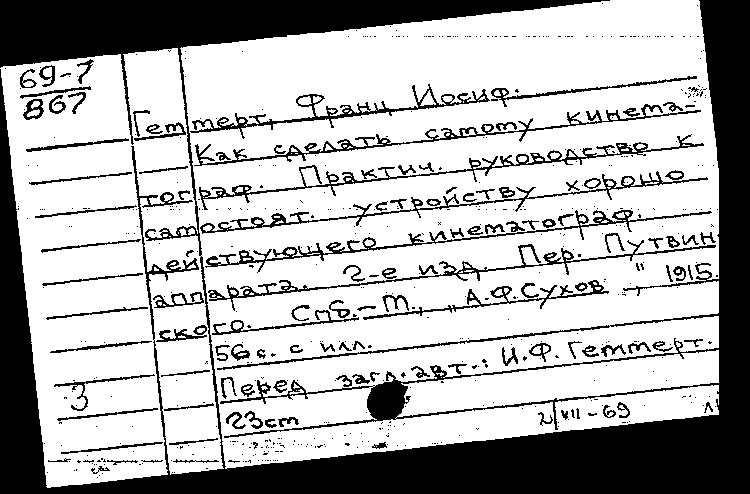 69-7
867
Геттерт, Франц Иосиф.
Как сделать самому кинема-
тограф. Практич. руководство к
самостоят. устройству хорошо
действующего кинематограф.
аппарата. 2-е изд. Пер. Путвин
ского. Спб.-М., „А.Ф.Сухов", 1915.
56с. с илл.
Перед загл. авт.: И.Ф. Геттерт.
3
23см
2/VII-69